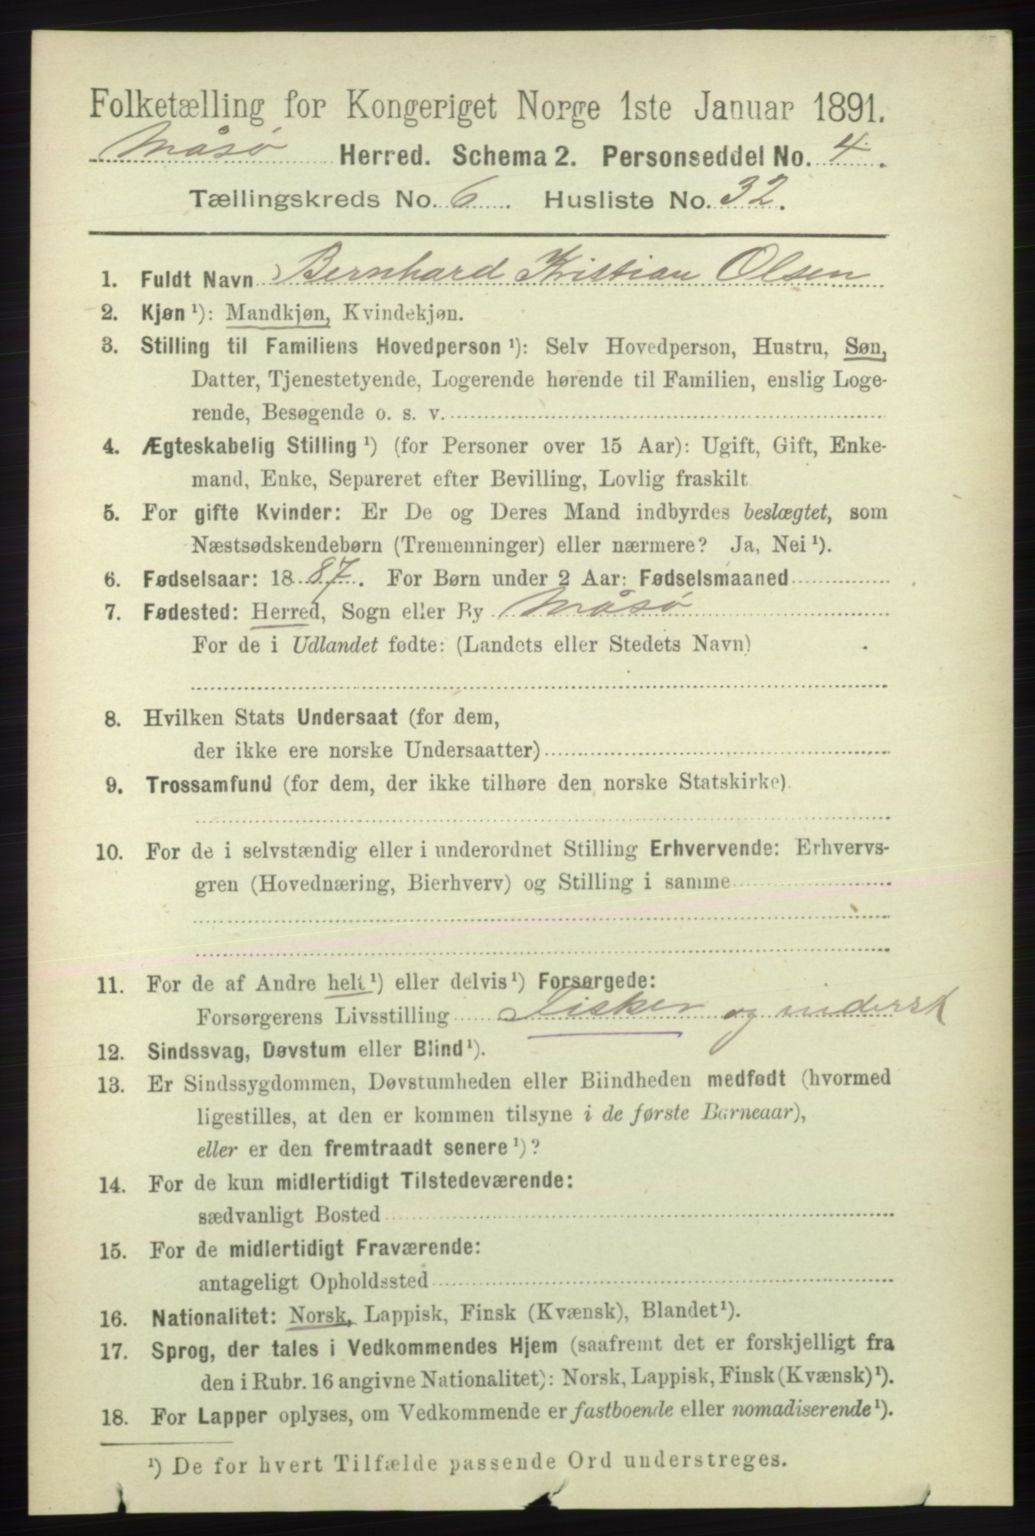 Folketælling for Kongeriget Norge 1ste Januar 1891.
Måsø Herred. Schema 2. Personseddel No. 4.
Tællingskreds No. 6. Husliste No. 32.
1. Fuldt Navn Bernhard Kristian Olsen
2. Kjøn ¹): Mandkjøn, Kvindekjøn.
3. Stilling til Familiens Hovedperson ¹): Selv Hovedperson, Hustru, Søn,
Datter, Tjenestetyende, Logerende hørende til Familien, enslig Loge-
rende, Besøgende o. s. v.
4. Ægteskabelig Stilling ¹) (for Personer over 15 Aar): Ugift, Gift, Enke-
mand, Enke, Separeret efter Bevilling, Lovlig fraskilt
5. For gifte Kvinder: Er De og Deres Mand indbyrdes beslægtet, som
Næstsødskendebørn (Tremenninger) eller nærmere? Ja, Nei ¹).
6. Fødselsaar: 1887. For Børn under 2 Aar: Fødselsmaaned
7. Fødested: Herred, Sogn eller By Måsø
For de i Udlandet fødte: (Landets eller Stedets Navn)
8. Hvilken Stats Undersaat (for dem,
der ikke ere norske Undersaatter)
9. Trossamfund (for dem, der ikke tilhøre den norske Statskirke)
10. For de i selvstændig eller i underordnet Stilling Erhvervende: Erhvervs-
gren (Hovednæring, Bierhverv) og Stilling i samme
11. For de af Andre helt ¹) eller delvis ¹) Forsørgede:
Forsørgerens Livsstilling Fisker og
12. Sindssvag, Døvstum eller Blind ¹).
13. Er Sindssygdommen, Døvstumheden eller Blindheden medfødt (hvormed
ligestilles, at den er kommen tilsyne i de første Barneaar),
eller er den fremtraadt senere ¹)?
14. For de kun midlertidigt Tilstedeværende:
sædvanligt Bosted
15. For de midlertidigt Fraværende:
antageligt Opholdssted
16. Nationalitet: Norsk, Lappisk, Finsk (Kvænsk), Blandet ¹).
17. Sprog, der tales i Vedkommendes Hjem (saafremt det er forskjelligt fra
den i Rubr. 16 angivne Nationalitet): Norsk, Lappisk, Finsk (Kvænsk) ¹).
18. For Lapper oplyses, om Vedkommende er fastboende eller nomadiserende ¹).
¹) De for hvert Tilfælde passende Ord understreges.